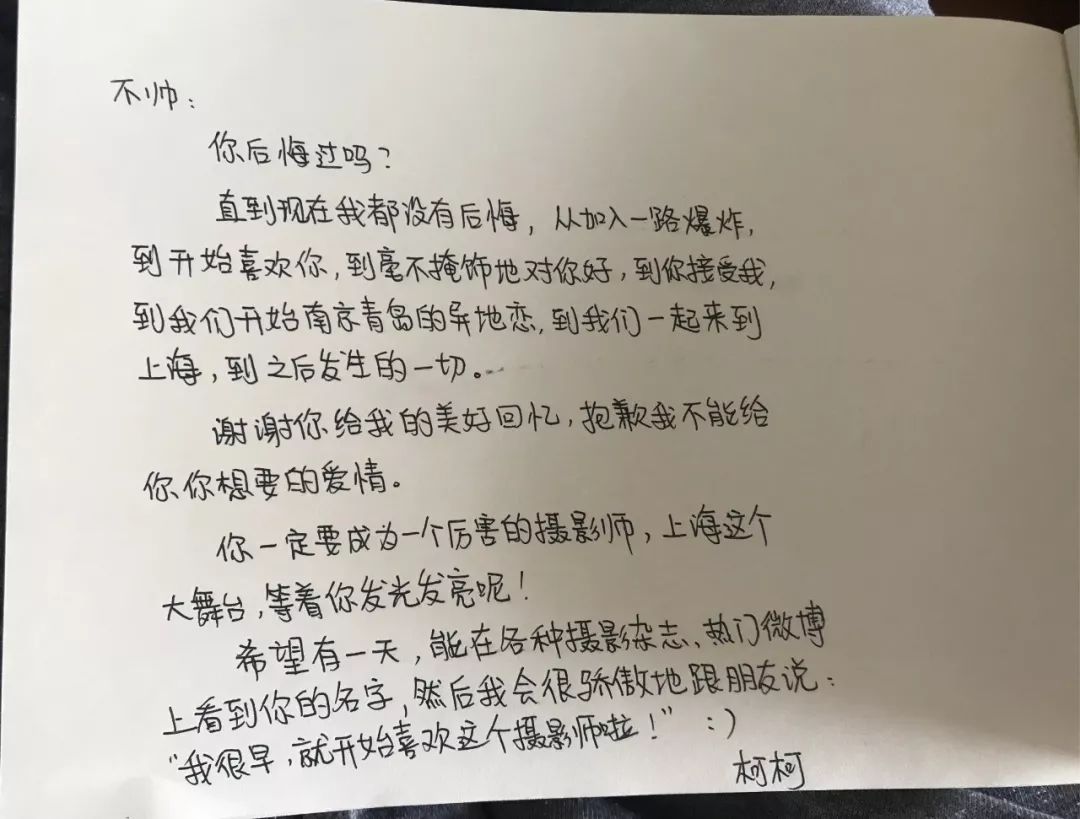 不帅：
你后悔过吗？
直到现在我都没有后悔，从加入一路爆炸，
到开始喜欢你，到毫不掩饰地对你好，到你接受我，
到我们开始南京青岛的异地恋，到我们一起来到
上海，到之后发生的一切。
谢谢你给我的美好回忆，抱歉我不能给
你你想要的爱情。
你一定要成为一个厉害的摄影师，上海这个
大舞台，等着你发光发亮呢！
希望有一天，能在各种摄影杂志、热门微博
上看到你的名字，然后我会很骄傲地跟朋友说：
“我很早，就开始喜欢这个摄影师啦！” ：）
柯柯